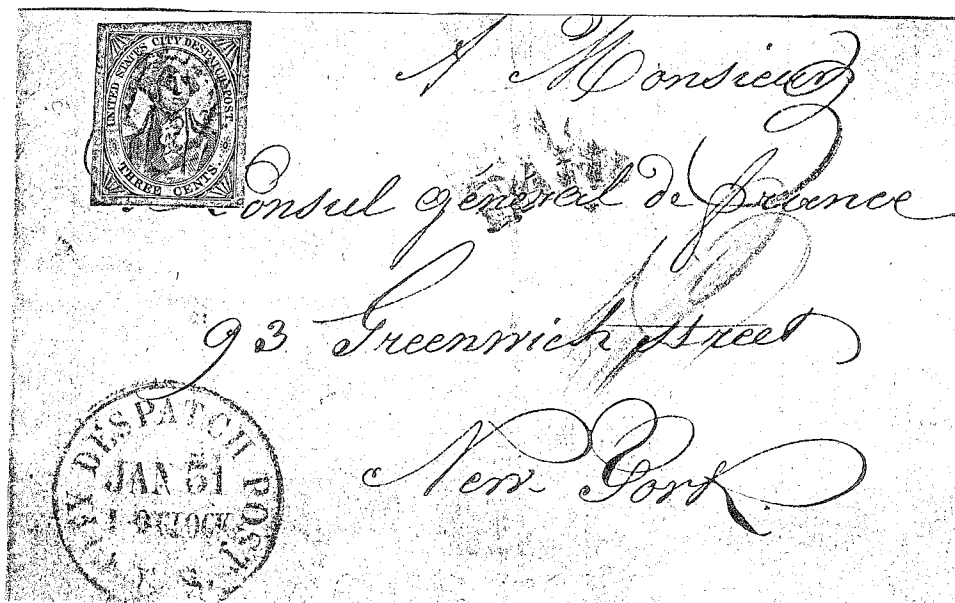 UNITED STATES CITY DESPATCH POST.
THREE CENTS.
A Monsieur
Consul général de France
93 Greenwich Street
New-York
CITY DESPATCH POST
JAN 31
O'CLOCK
U.S.